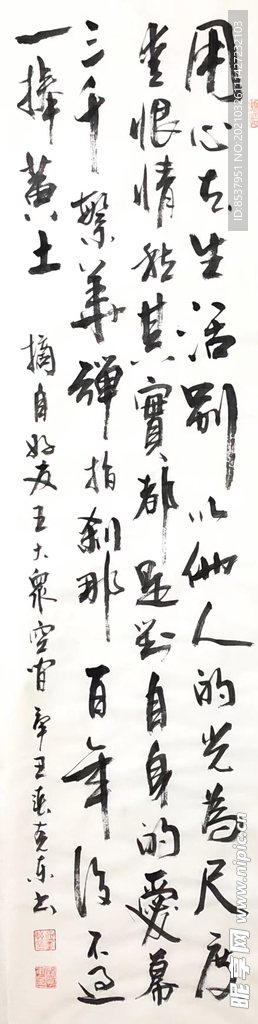 用心去生活别以他人的光為尺度
愛恨情愁其實都是對自身的愛慕
三千繁华彈指刹那百年後不过
一捧黄土
摘自好友王大众空间辛丑春克东书
ID:8537951 NO:20210326111427232103
昵享网 www.nipic.cn